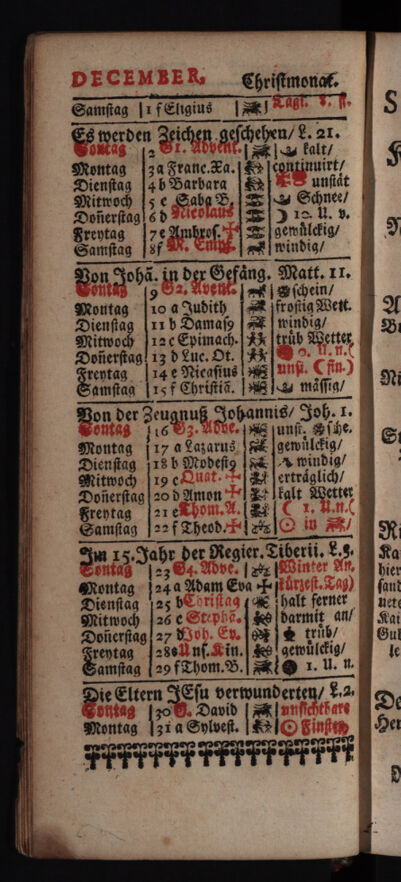 DECEMBER, Christmonat.
Samstag 1 f Eligius Tagl. 8. st.
Es werden Zeichen geschehen/ L. 21.
Sontag 2 G1. Advent. kalt/
Montag 3 a Franc. Xa. continuirt/
Dienstag 4 b Barbara unstät
Mitwoch 5 c Saba B. Schnee/
Doñerstag 6 d Nicolaus ☽ 10. U. v.
Freytag 7 e Ambros. ✠ gewülckig/
Samstag 8 f M. Empf. windig/
Von Johã. in der Gefäng. Matt. 11.
Sontag 9 G2. Avent. schein/
Montag 10 a Judith frostig Wett.
Dienstag 11 b Damasꝰ windig/
Mitwoch 12 c Epimach. trüb Wetter
Doñerstag 13 d Luc. Ot. 0. U. n. (
Freytag 14 e Nicasius unst. (fin.)
Samstag 15 f Christiã. mässig/
Von der Zeugnuß Johannis/ Joh. 1.
Sontag 16 G3. Adve. unst. sche.
Montag 17 a Lazarus gewülckig/
Dienstag 18 b Modestꝰ windig/
Mitwoch 19 c Quat. ✠ erträglich/
Doñerstag 20 d Amon ✠ kalt Wetter
Freytag 21 e Thom. A. ☾ 1. U. n. (
Samstag 22 f Theod. ✠ ☉ in
Im 15. Jahr der Regier. Tiberii. L. 3.
Sontag 23 G4. Adve. Winter An.
Montag 24 a Adam Eva ✠ kürzest. Tag)
Dienstag 25 b Christag halt ferner
Mitwoch 26 c Stephã. darmit an/
Doñerstag 27 d Joh. Ev. trüb/
Freytag 28 e Uns. Kin. gewülckig/
Samstag 29 f Thom. B. 1. U. n.
Die Eltern JEsu verwunderten/ L. 2.
Sontag 30 G. David unsichtbare
Montag 31 a Sylvest. ☉ Finster